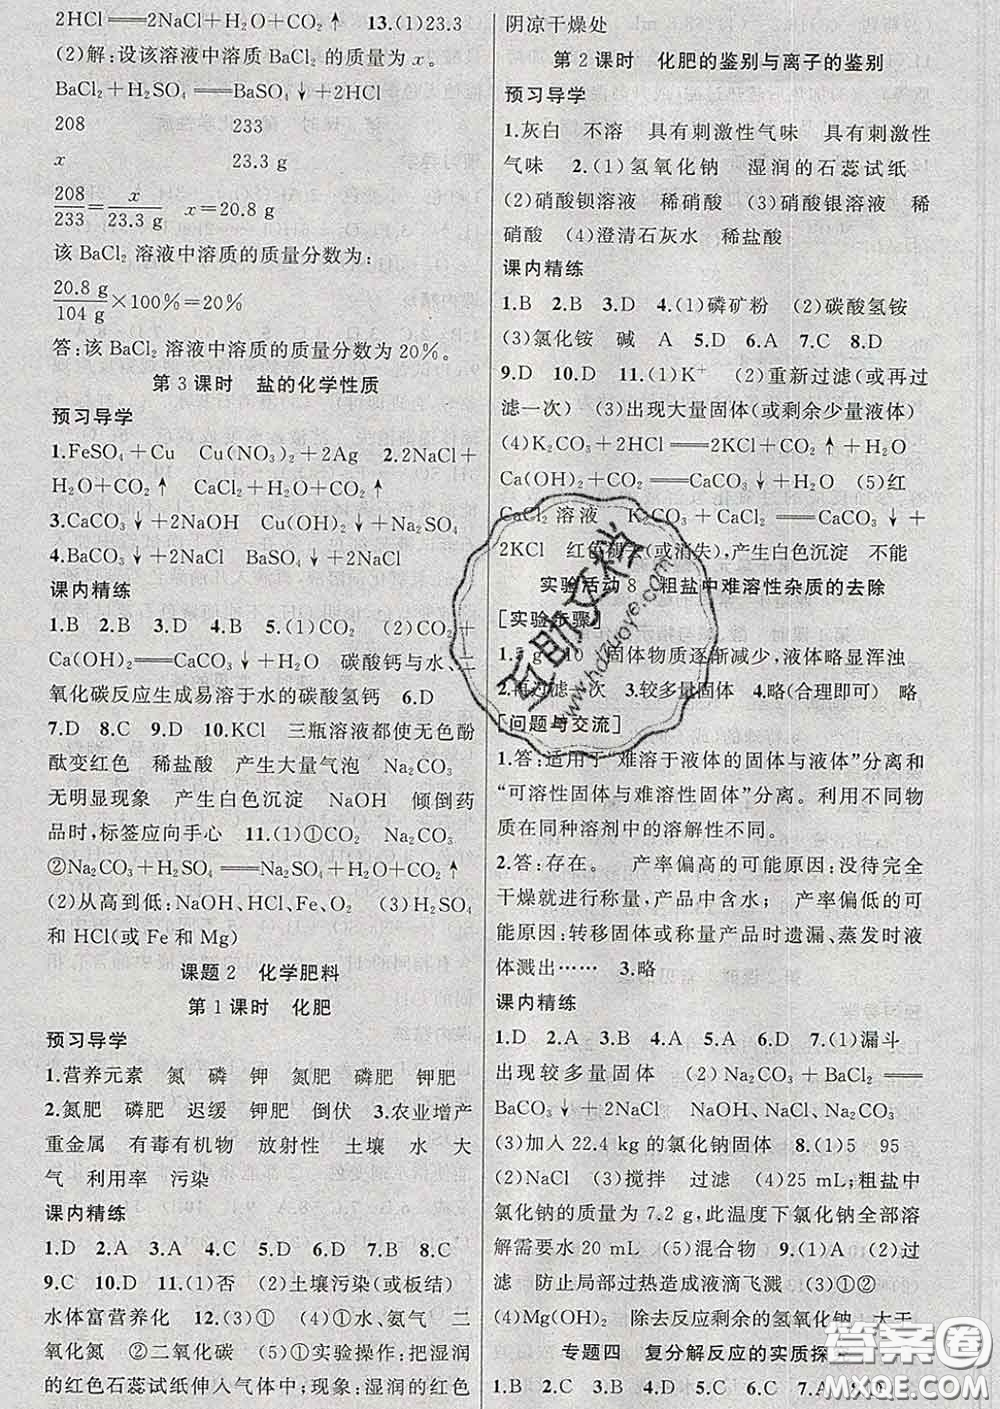 2HCl══2NaCl+H₂O+CO₂↑　13.(1)23.3
(2)解:设该溶液中溶质 BaCl₂ 的质量为 x。
BaCl₂+H₂SO₄══BaSO₄↓+2HCl
208　233
x　23.3 g
208/233=x/23.3 g　x=20.8 g
该 BaCl₂ 溶液中溶质的质量分数为:
20.8 g/104 g×100%=20%
答:该 BaCl₂ 溶液中溶质的质量分数为 20%。
第 3 课时　盐的化学性质
预习导学
1.FeSO₄+Cu　Cu(NO₃)₂+2Ag　2.2NaCl+
H₂O+CO₂↑　CaCl₂+H₂O+CO₂↑
3.CaCO₃↓+2NaOH　Cu(OH)₂↓+Na₂SO₄
4.BaCO₃↓+2NaCl　BaSO₄↓+2NaCl
课内精练
1.B　2.B　3.D　4.B　5.(1)CO₂　(2)CO₂+
Ca(OH)₂══CaCO₃↓+H₂O　碳酸钙与水、二
氧化碳反应生成易溶于水的碳酸氢钙　6.D
7.D　8.C　9.D　10.KCl　三瓶溶液都使无色酚
酞变红色　稀盐酸　产生大量气泡　Na₂CO₃
无明显现象　产生白色沉淀　NaOH　倾倒药
品时,标签应向手心　11.(1)①CO₂　Na₂CO₃
②Na₂CO₃+H₂SO₄══Na₂SO₄+H₂O+CO₂↑
(2)从高到低:NaOH、HCl、Fe、O₂　(3)H₂SO₄
和 HCl(或 Fe 和 Mg)
课题 2　化学肥料
第 1 课时　化肥
预习导学
1.营养元素　氮　磷　钾　氮肥　磷肥　钾肥
2.氮肥　磷肥　迟缓　钾肥　倒伏　3.农业增产
重金属　有毒有机物　放射性　土壤　水　大
气　利用率　污染
课内精练
1.D　2.A　3.B　4.C　5.D　6.A　7.B　8.C
9.C　10.D　11.(1)否　(2)土壤污染(或板结)
水体富营养化　12.(3)①　(4)①水、氨气　二
氧化氮　②二氧化碳　(5)①实验操作:把湿润
的红色石蕊试纸伸入气体中;现象:湿润的红色
阴凉干燥处
第 2 课时　化肥的鉴别与离子的鉴别
预习导学
1.灰白　不溶　具有刺激性气味　具有刺激性
气味　2.(1)氢氧化钠　湿润的石蕊试纸
(2)硝酸钡溶液　稀硝酸　(3)硝酸银溶液　稀
硝酸　(4)澄清石灰水　稀盐酸
课内精练
1.B　2.B　3.D　4.(1)磷矿粉　(2)碳酸氢铵
(3)氯化铵　碱　A　5.D　6.A　7.C　8.D
9.D　10.D　11.(1)K⁺　(2)重新过滤(或再过
滤一次)　(3)出现大量固体(或剩余少量液体)
(4)K₂CO₃+2HCl══2KCl+CO₂↑+H₂O
Ca(OH)₂+CO₂══CaCO₃↓+H₂O　(5)红
CaCl₂ 溶液　K₂CO₃+CaCl₂══CaCO₃↓+
2KCl　红色褪去(或消失),产生白色沉淀　不能
实验活动 8　粗盐中难溶性杂质的去除
[实验步骤]
1.5 g　10　固体物质逐渐减少,液体略显浑浊
2.再过滤一次　3.较多量固体　4.略(合理即可)　略
[问题与交流]
1.答:适用于“难溶于液体的固体与液体”分离和
“可溶性固体与难溶性固体”分离。利用不同物
质在同种溶剂中的溶解性不同。
2.答:存在。　产率偏高的可能原因:没待完全
干燥就进行称量,产品中含水;　产率偏低的可
能原因:转移固体或称量产品时遗漏、蒸发时液
体溅出……　3.略
课内精练
1.D　2.A　3.B　4.A　5.A　6.D　7.(1)漏斗
出现较多量固体　(2)Na₂CO₃+BaCl₂══
BaCO₃↓+2NaCl　NaOH、NaCl、Na₂CO₃
(3)加入 22.4 kg 的氯化钠固体　8.(1)5　95
(2)NaCl　(3)搅拌　过滤　(4)25 mL;粗盐中
氯化钠的质量为 7.2 g,此温度下氯化钠全部溶
解需要水 20 mL　(5)混合物　9.(1)A　(2)过
滤　防止局部过热造成液滴飞溅　(3)①②
(4)Mg(OH)₂　除去反应剩余的氢氧化钠　大于
专题四　复分解反应的实质探
1.B　2.B　3.D　4.C　5.C　6.C　7.A　8.D
互助文档
www.hdzuoye.com
答案圈
MXQE.COM